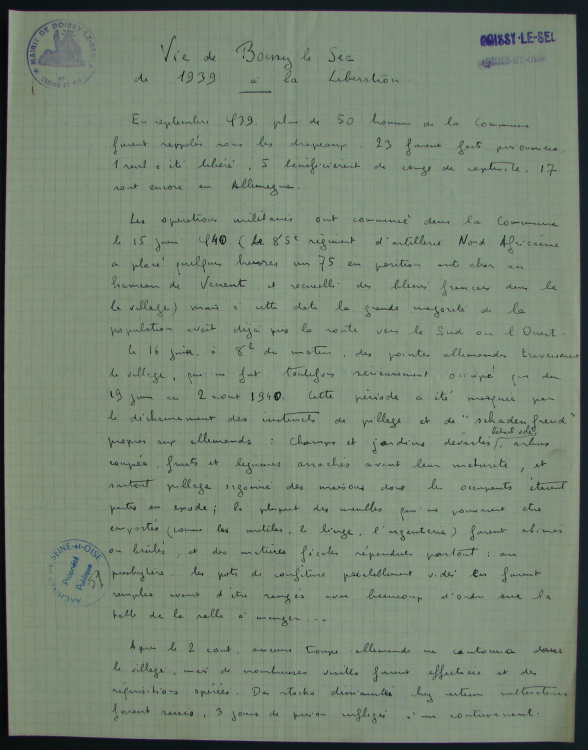 MAIRIE DE BOISSY-LE-SEC
BOISSY-LE-SEC
SEINE-ET-OISE
Vie de Boissy le Sec
de 1939 à la Libération.
En septembre 1939 plus de 50 hommes de la Commune
furent rappelés sous les drapeaux. 23 furent faits prisonniers,
1 seul a été libéré, 5 bénéficièrent de congé de captivité, 17
sont encore en Allemagne.
Les opérations militaires ont commencé dans la Commune
le 15 juin 1940 (le 85e régiment d'artillerie Nord Africaine
a placé quelques heures un 75 en position anti char au
hameau de Venant et recueilli des blessés français dans le
le village) mais à cette date la grande majorité de la
population avait déjà pris la route vers le Sud ou l'Ouest.
Le 16 juin, à 8h du matin, des pointes allemandes traversaient
le village, qui ne fut toutefois sérieusement occupé que du
19 juin au 2 aout 1940. Cette période a été marquée par
le déchainement des instincts de pillage et de "schadenfreud"
propres aux allemands : Champs et jardins dévastés, bétail volé, arbres
coupés, fruits et légumes arrachés avant leur maturité, et
surtout pillage organisé des maisons dont les occupants étaient
partis en exode; la plupart des meubles qui ne pouvaient être
emportés (comme les matelas, le linge, l'argenterie) furent abimés
ou brûlés, et des matières fécales répandues partout : au
presbytère les pots de confiture préalablement vidés en furent
remplis avant d'être rangés avec beaucoup d'ordre sur la
table de la salle à manger...
ARCHIVES DE SEINE-et-OISE
Propriété
Publique
Après le 2 aout, aucune troupe allemande ne cantonna dans
le village, mais de nombreuses visites furent effectuées et des
réquisitions opérées. Des stocks dissimulés chez certains cultivateurs
furent saisis, 3 jours de prison infligés à un contrevenant.